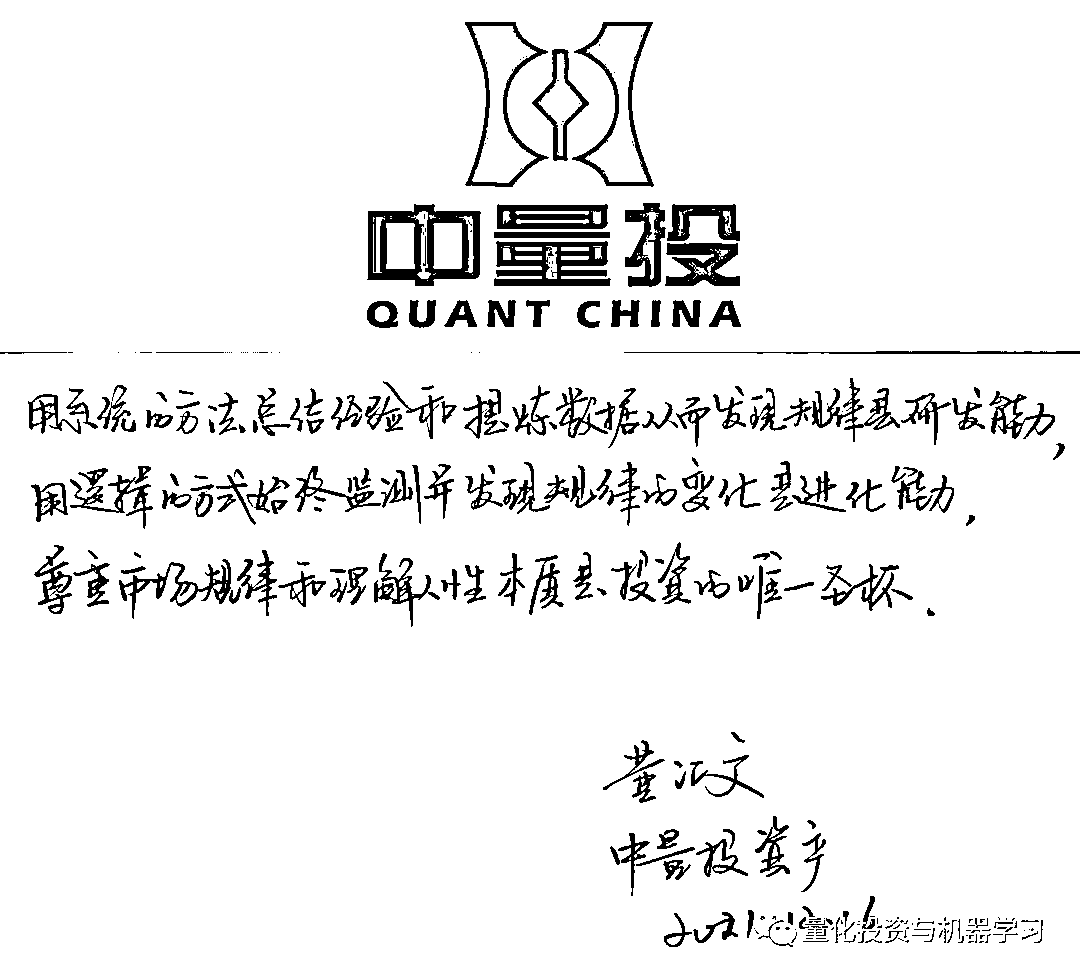 中量投
QUANT CHINA
用系统的方法总结经验和提炼数据从而发现规律是研发能力,
用逻辑的方式始终监测并发现规律的变化是进化能力,
尊重市场规律和理解人性本质是投资的唯一圣杯.
董汇文
中量投资产
2021
量化投资与机器学习